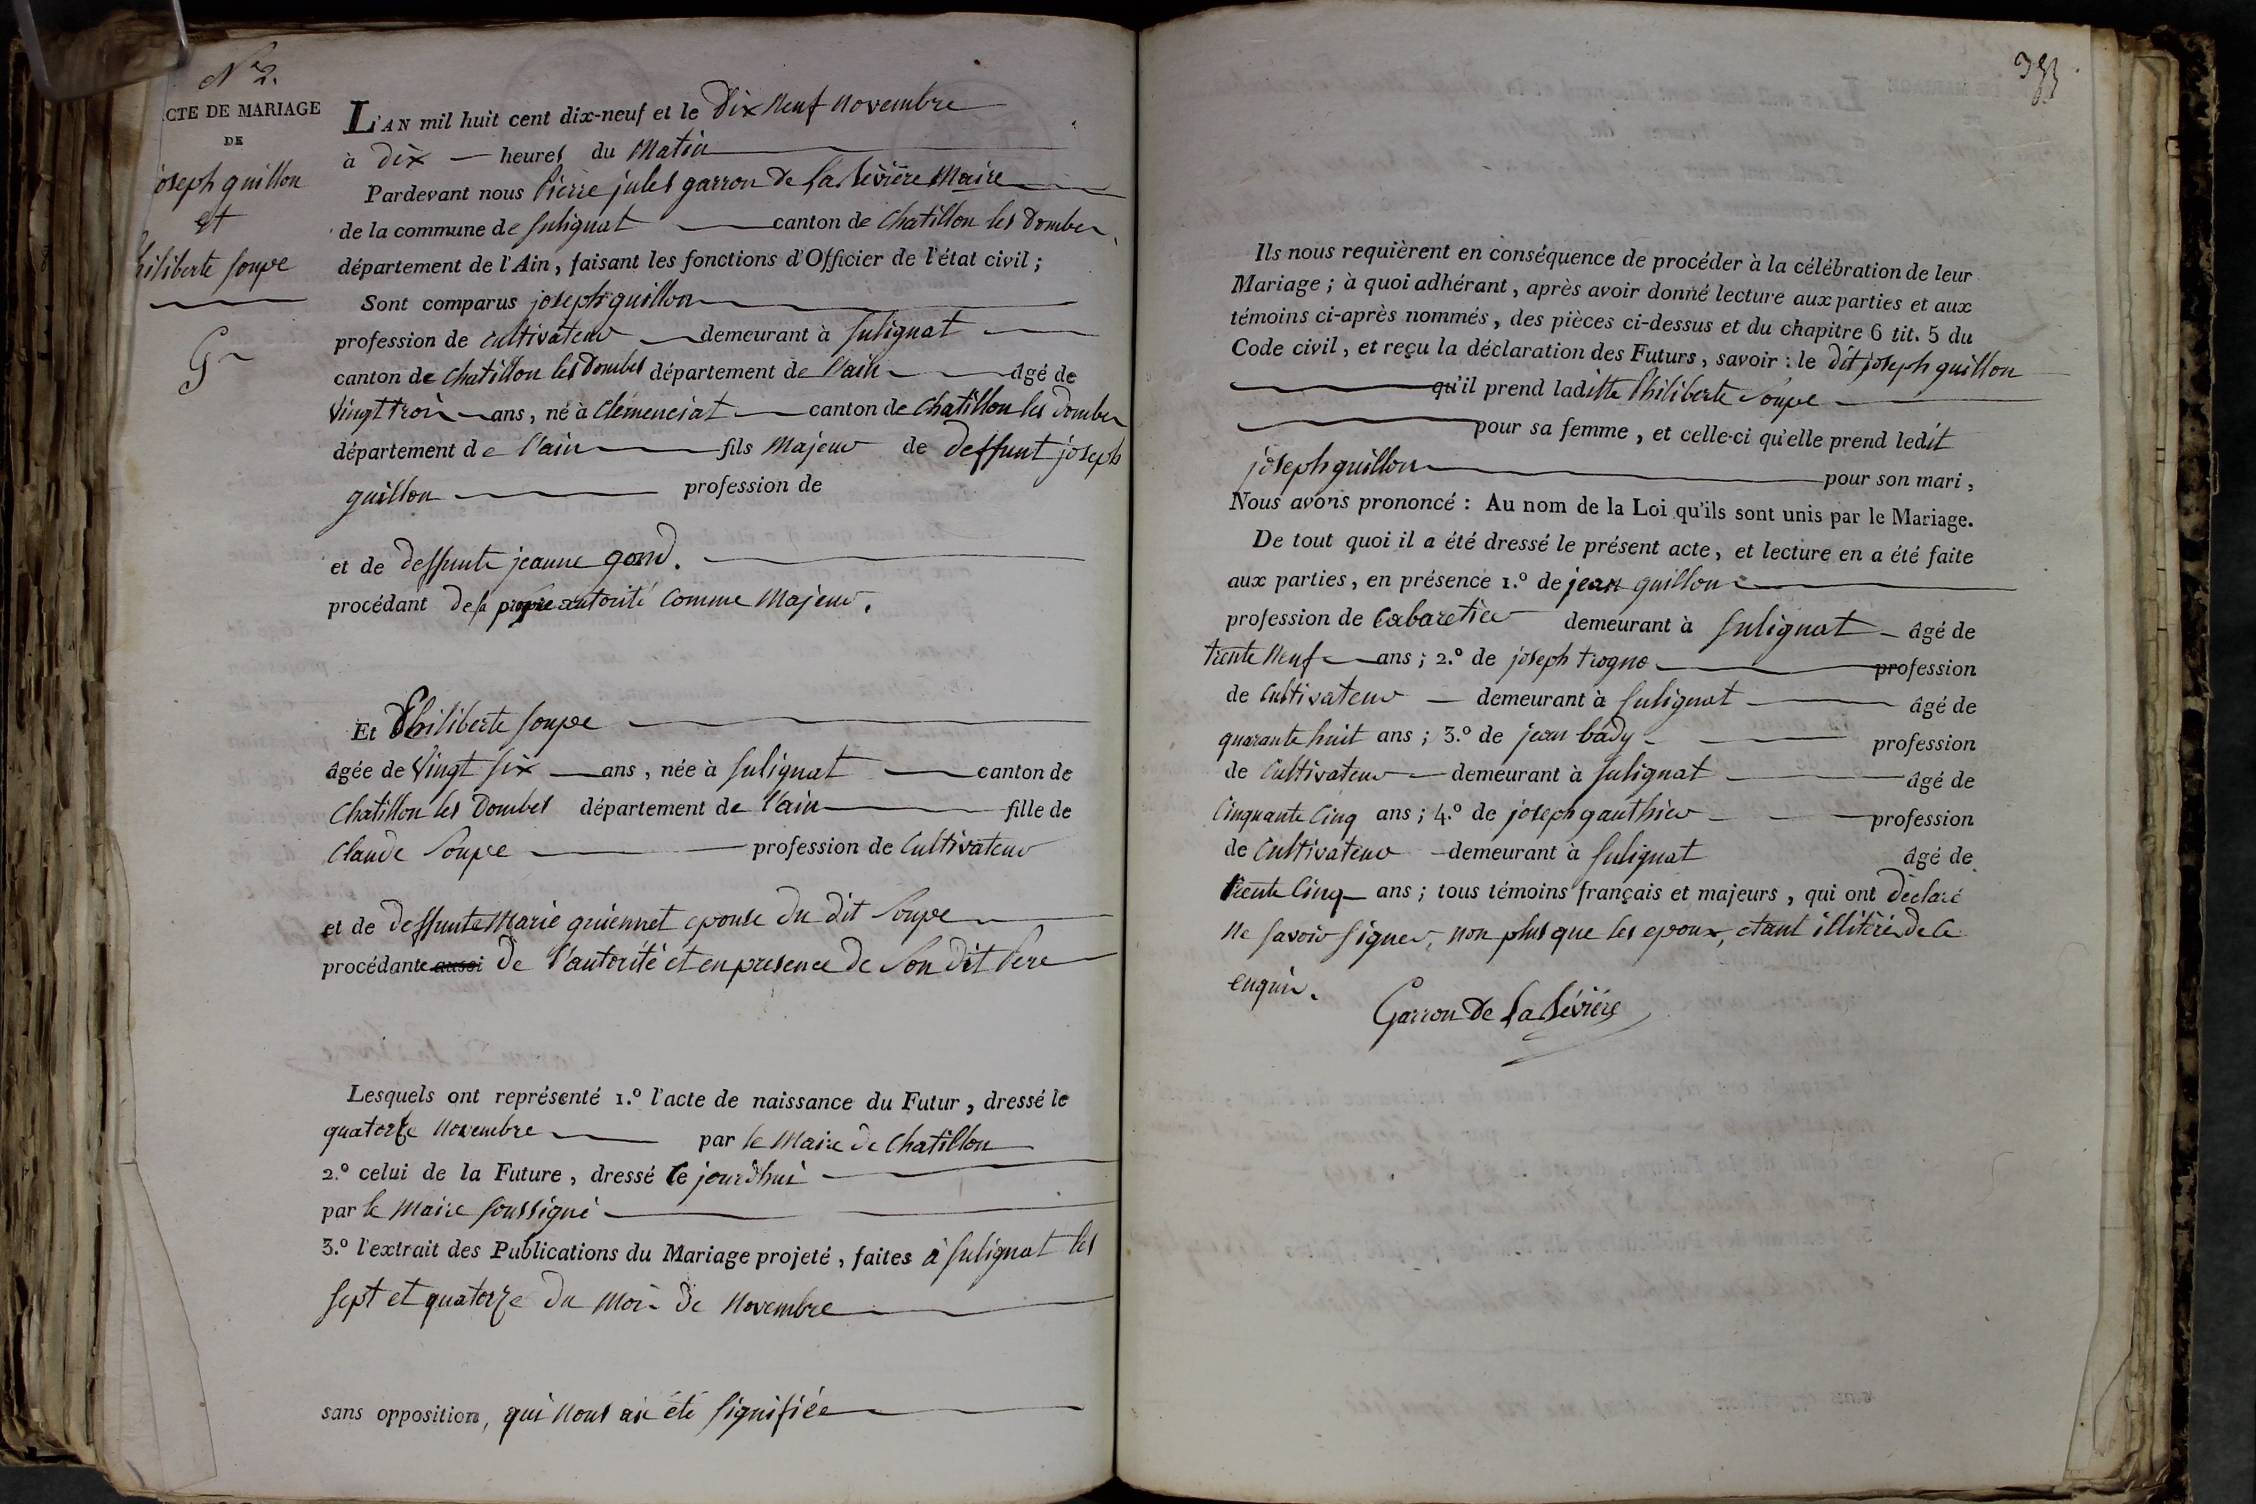 N° 2.
ACTE DE MARIAGE
DE
joseph guillon
et
hiliberte soupe
L'AN mil huit cent dix-neuf et le dix neuf novembre
à dix heures du matin
Pardevant nous Pierre jules garron de la Bévière Maire
de la commune de sulignat canton de chatillon les dombes
département de l'Ain, faisant les fonctions d'Officier de l'état civil;
Sont comparus joseph guillon
profession de cultivateur demeurant à sulignat
canton de chatillon les dombes département de l'ain âgé de
vingt trois ans, né à clémenciat canton de chatillon les dombes
département de l'ain fils majeur de deffunt joseph
guillon profession de
et de deffunte jeanne gond.
procédant de sa propre autorité comme majeur.
Et Philiberte soupe
âgée de vingt six ans, née à sulignat canton de
chatillon les dombes département de l'ain fille de
claude soupe profession de cultivateur
et de deffunte Marie guiennet epouse du dit soupe
procédante aussi de l'autorité et en presence de son dit Pere
Lesquels ont représenté 1.° l'acte de naissance du Futur, dressé le
quatorze novembre par le maire de chatillon
2.° celui de la Future, dressé ce jourd'hui
par le maire soussigné
3.° l'extrait des Publications du Mariage projeté, faites à sulignat les
sept et quatorze du mois de novembre
sans opposition, qui nous ai été signifiée
Ils nous requièrent en conséquence de procéder à la célébration de leur
Mariage; à quoi adhérant, après avoir donné lecture aux parties et aux
témoins ci-après nommés, des pièces ci-dessus et du chapitre 6 tit. 5 du
Code civil, et reçu la déclaration des Futurs, savoir: le dit joseph guillon
qu'il prend laditte Philiberte Soupe
pour sa femme, et celle-ci qu'elle prend ledit
joseph guillon pour son mari,
Nous avons prononcé: Au nom de la Loi qu'ils sont unis par le Mariage.
De tout quoi il a été dressé le présent acte, et lecture en a été faite
aux parties, en présence 1.° de jean guillon
profession de cabaretier demeurant à sulignat âgé de
trente neuf ans; 2.° de joseph trogno profession
de cultivateur demeurant à sulignat âgé de
quarante huit ans; 3.° de jean bady profession
de cultivateur demeurant à sulignat âgé de
cinquante cinq ans; 4.° de joseph gauthier profession
de cultivateur demeurant à sulignat âgé de
trente cinq ans; tous témoins français et majeurs, qui ont déclaré
ne savoir signer, non plus que les epoux, etant illitérés de ce
enquis.
Garron de la Bévière